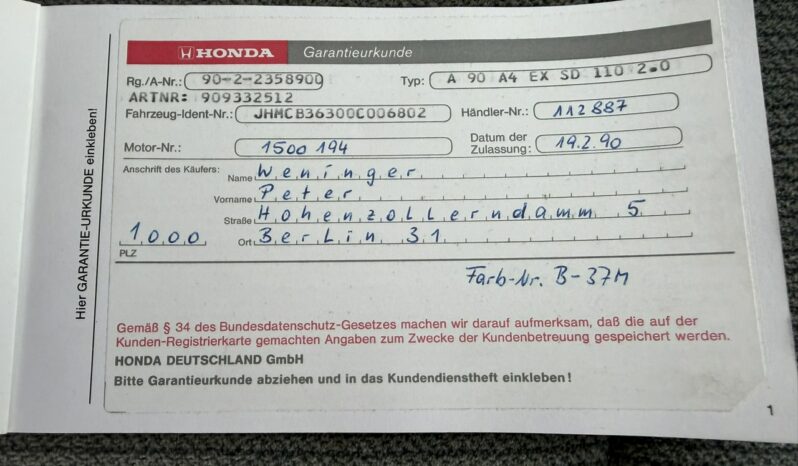 HONDA Garantieurkunde
Rg./A-Nr.: 90-2-2358900 Typ: A 90 A4 EX SD 110 2.0
ARTNR: 909332512
Fahrzeug-Ident-Nr.: JHMCB36300C006802 Händler-Nr.: 112887
Motor-Nr.: 1500194 Datum der Zulassung: 19.2.90
Anschrift des Käufers: Name Weninger
Vorname Peter
Straße Hohenzollerndamm 5
1000 Ort Berlin 31
PLZ
Farb-Nr. B-37M
Gemäß § 34 des Bundesdatenschutz-Gesetzes machen wir darauf aufmerksam, daß die auf der
Kunden-Registrierkarte gemachten Angaben zum Zwecke der Kundenbetreuung gespeichert werden.
HONDA DEUTSCHLAND GmbH
Bitte Garantieurkunde abziehen und in das Kundendienstheft einkleben!
Hier GARANTIE-URKUNDE einkleben!
1